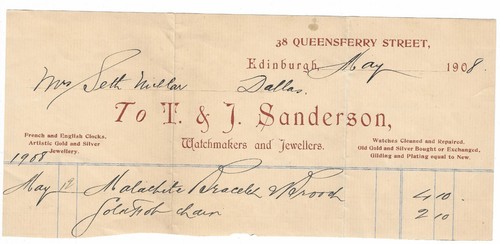 38 QUEENSFERRY STREET,
Edinburgh, May 1908.
Mrs Seth Millar
Dallas.
To T. & J. Sanderson,
Watchmakers and Jewellers.
French and English Clocks.
Artistic Gold and Silver
Jewellery.
Watches Cleaned and Repaired.
Old Gold and Silver Bought or Exchanged,
Gilding and Plating equal to New.
1908
May Malachite Bracelet & Brooch 4 10
Gold Fob chain 2 10